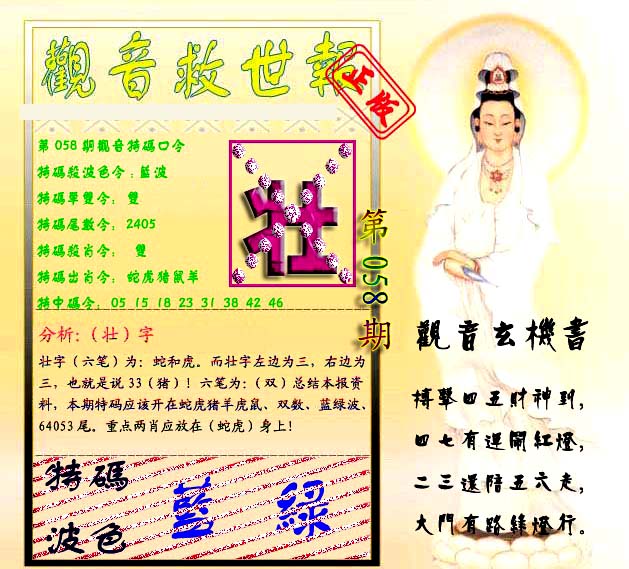 觀音救世報
正版
第058期觀音特碼口令
特碼殺波色令:藍波
特碼單雙令: 雙
特碼尾數令: 2405
特碼殺肖令: 雙
特碼出肖令: 蛇虎猪鼠羊
特中碼令: 05 15 18 23 31 38 42 46
壮
第058期
分析:(壮)字
壮字(六笔)为:蛇和虎。而壮字左边为三,右边为
三,也就是说33(猪)!六笔为:(双)总结本报资
料,本期特码应该开在蛇虎猪羊虎鼠、双数、蓝绿波、
64053尾。重点两肖应放在(蛇虎)身上!
特碼
波色
藍 綠
觀音玄機書
搏擊四五財神到,
四七有逆開紅燈,
二三還陪五六走,
大門有路綠燈行。